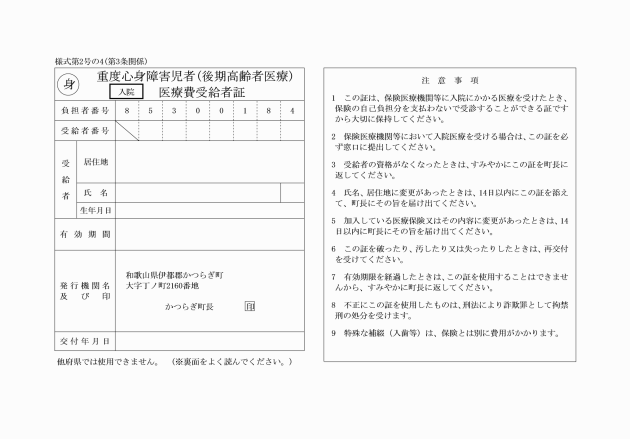 様式第2号の4(第3条関係)
身
重度心身障害児者(後期高齢者医療)
入院 医療費受給者証
負担者番号 8 5 3 0 0 1 8 4
受給者番号
受給者
居住地
氏名
生年月日
有効期間
発行機関名
及び印
和歌山県伊都郡かつらぎ町
大字丁ノ町2160番地
かつらぎ町長 印
交付年月日
他府県では使用できません。 (※裏面をよく読んでください。)
注意事項
1 この証は、保険医療機関等に入院にかかる医療を受けたとき、
保険の自己負担分を支払わないで受診することができる証です
から大切に保持してください。
2 保険医療機関等において入院医療を受ける場合は、この証を必
ず窓口に提出してください。
3 受給者の資格がなくなったときは、すみやかにこの証を町長に
返してください。
4 氏名、居住地に変更があったときは、14日以内にこの証を添え
て、町長にその旨を届け出てください。
5 加入している医療保険又はその内容に変更があったときは、14
日以内に町長にその旨を届け出てください。
6 この証を破ったり、汚したり又は失ったりしたときは、再交付
を受けてください。
7 有効期限を経過したときは、この証を使用することはできませ
んから、すみやかに町長に返してください。
8 不正にこの証を使用したものは、刑法により詐欺罪として拘禁
刑の処分を受けます。
9 特殊な補綴(入歯等)は、保険とは別に費用がかかります。